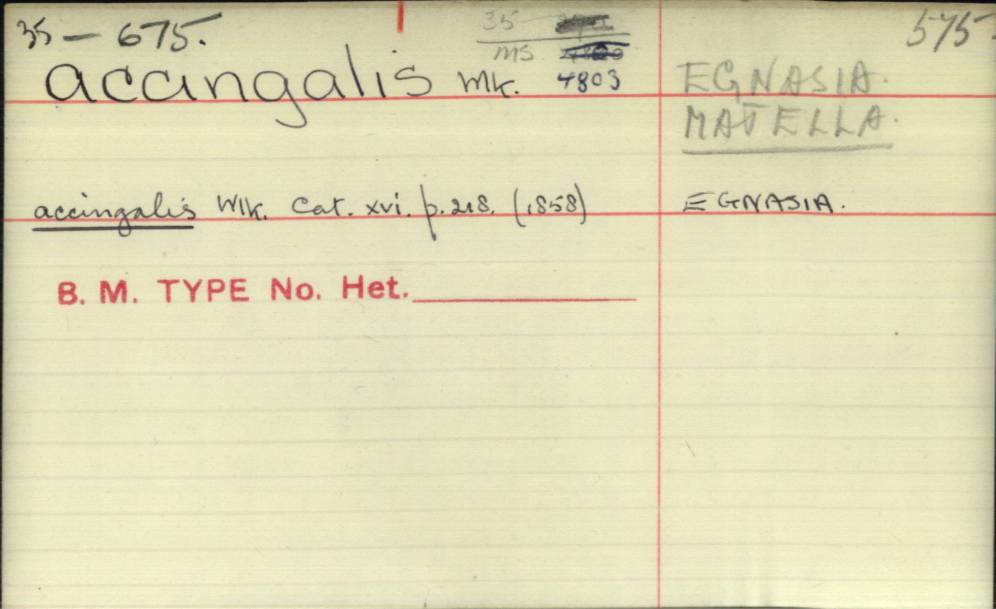 35 — 675.
35
575
MS
accingalis Wlk. 4803
EGNASIA.
MATELLA.
accingalis Wlk. Cat. xvi. p.218. (1858) EGNASIA.
B. M. TYPE No. Het.